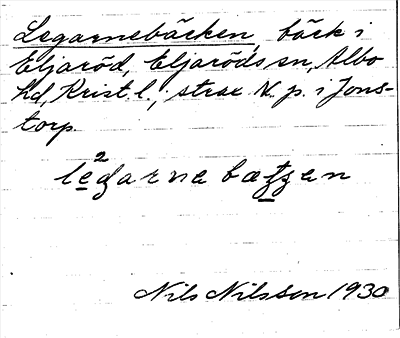 Legarnebäcken, bäck i
Eljaröd, Eljaröds sn, Albo
hd, Krist. l., strax V. p. i Jons-
torp.
le²garne
Nils Nilsson 1930